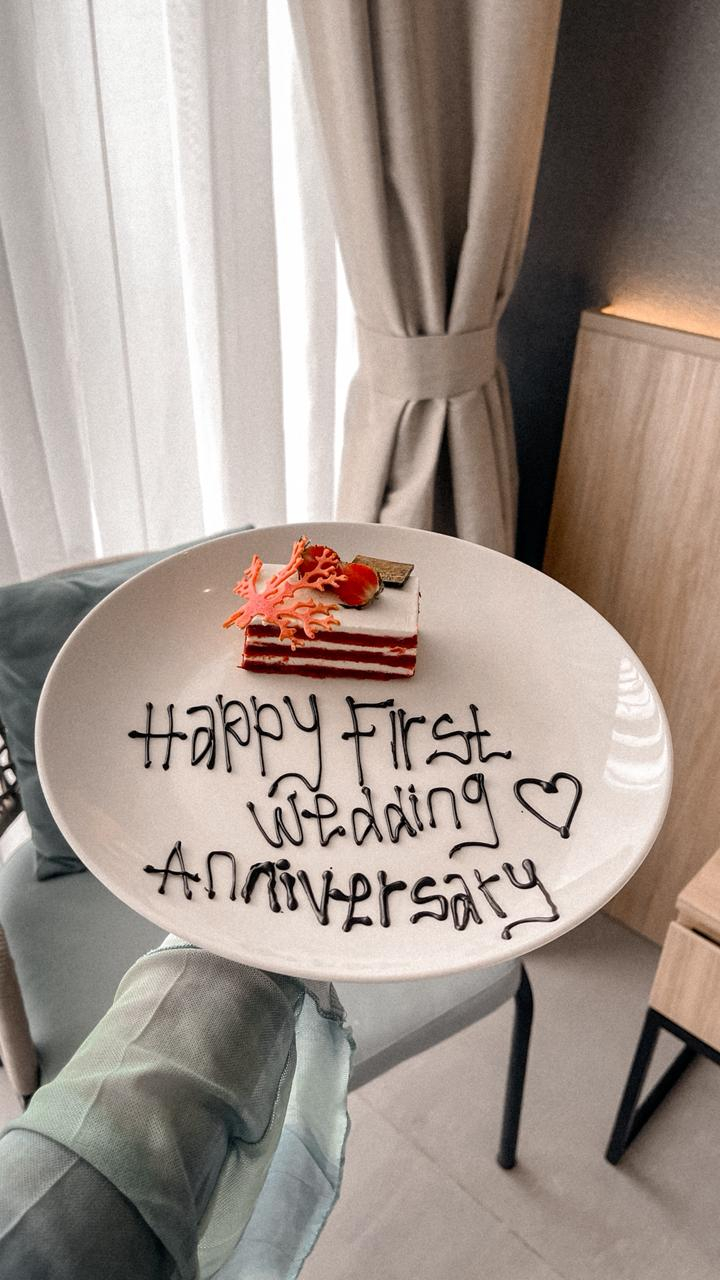 Happy First
Wedding ♡
Anniversary